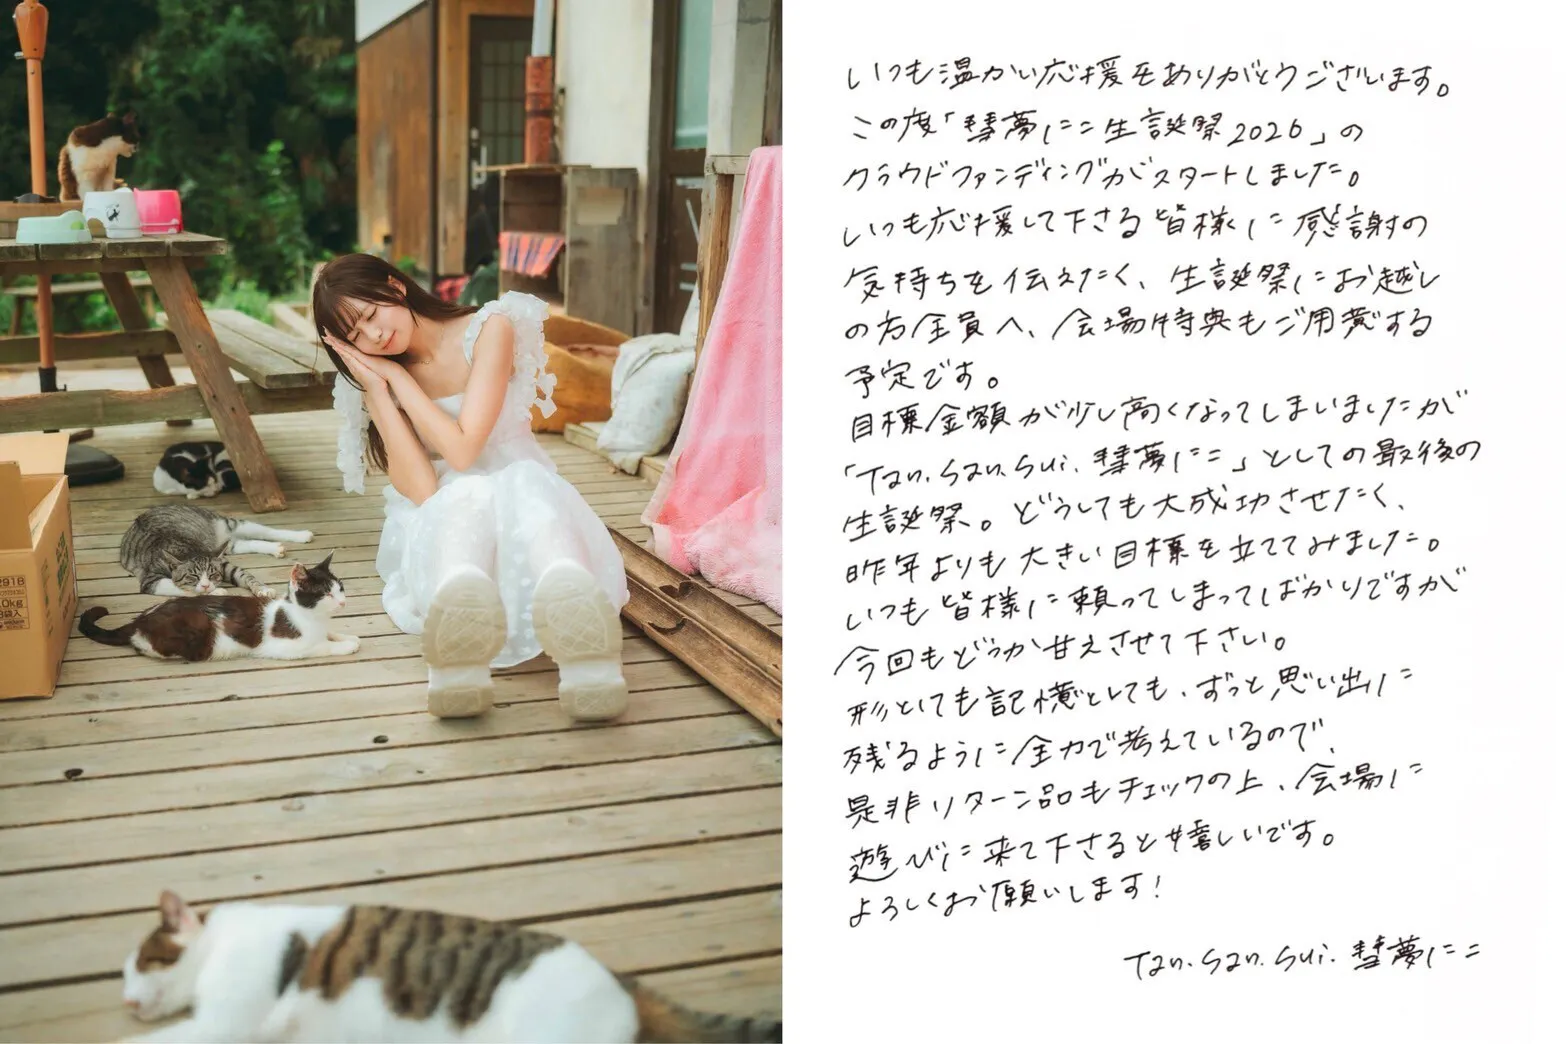 いつも温かい応援をありがとうございます。
この度「彗夢にこ生誕祭2026」の
クラウドファンディングがスタートしました。
いつも応援して下さる皆様に感謝の
気持ちを伝えたく、生誕祭にお越し
の方全員へ、会場特典もご用意する
予定です。
目標金額が少し高くなってしまいましたが
「Tan.San.Sui.彗夢にこ」としての最後の
生誕祭。どうしても大成功させたく、
昨年よりも大きい目標を立ててみました。
いつも皆様に頼ってしまってばかりですが
今回もどうか甘えさせて下さい。
形としても記憶としても、ずっと思い出に
残るように全力で考えているので、
是非リターン品もチェックの上、会場に
遊びに来て下さると嬉しいです。
よろしくお願いします!
Tan.San.Sui.彗夢にこ